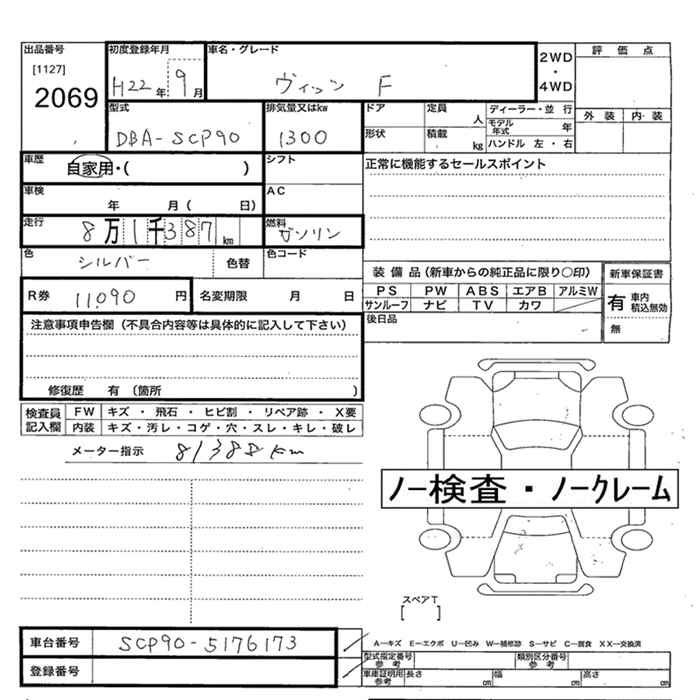 出品番号
[1127]
2069
初度登録年月
H22年 9月
車名・グレード
ヴィッツ F
2WD
・
4WD
評価点
外装 内・装
型式
DBA-SCP90
排気量又はkw
1300
ドア
定員
人
ディーラー・並行
モデル年式
年
形状
積載
kg
ハンドル 左・右
車歴
自家用・( )
シフト
正常に機能するセールスポイント
車検
年 月( 日)
AC
走行
8万1千387km
燃料
ガソリン
色
シルバー
色替
色コード
装備品(新車からの純正品に限り〇印)
新車保証書
PS PW ABS エアB アルミW
サンルーフ ナビ TV カワ
有 車内積込無効
無
R券
11,090円
名変期限 月 日
後日品
注意事項申告欄(不具合内容等は具体的に記入して下さい)
修復歴 有 (箇所 )
検査員記入欄
FW キズ・飛石・ヒビ割・リペア跡・X要
内装 キズ・汚レ・コゲ・穴・スレ・キレ・破レ
メーター指示 81388km
ノー検査・ノークレーム
スペアT
[ ]
車台番号
SCP90-5176173
登録番号
A-キズ E-エクボ U-凹み W-補修跡 S-サビ C-腐食 XX-交換済
型式指定番号
参考
類別区分番号
参考
車庫証明用
参考
長さ cm
幅 cm
高さ cm